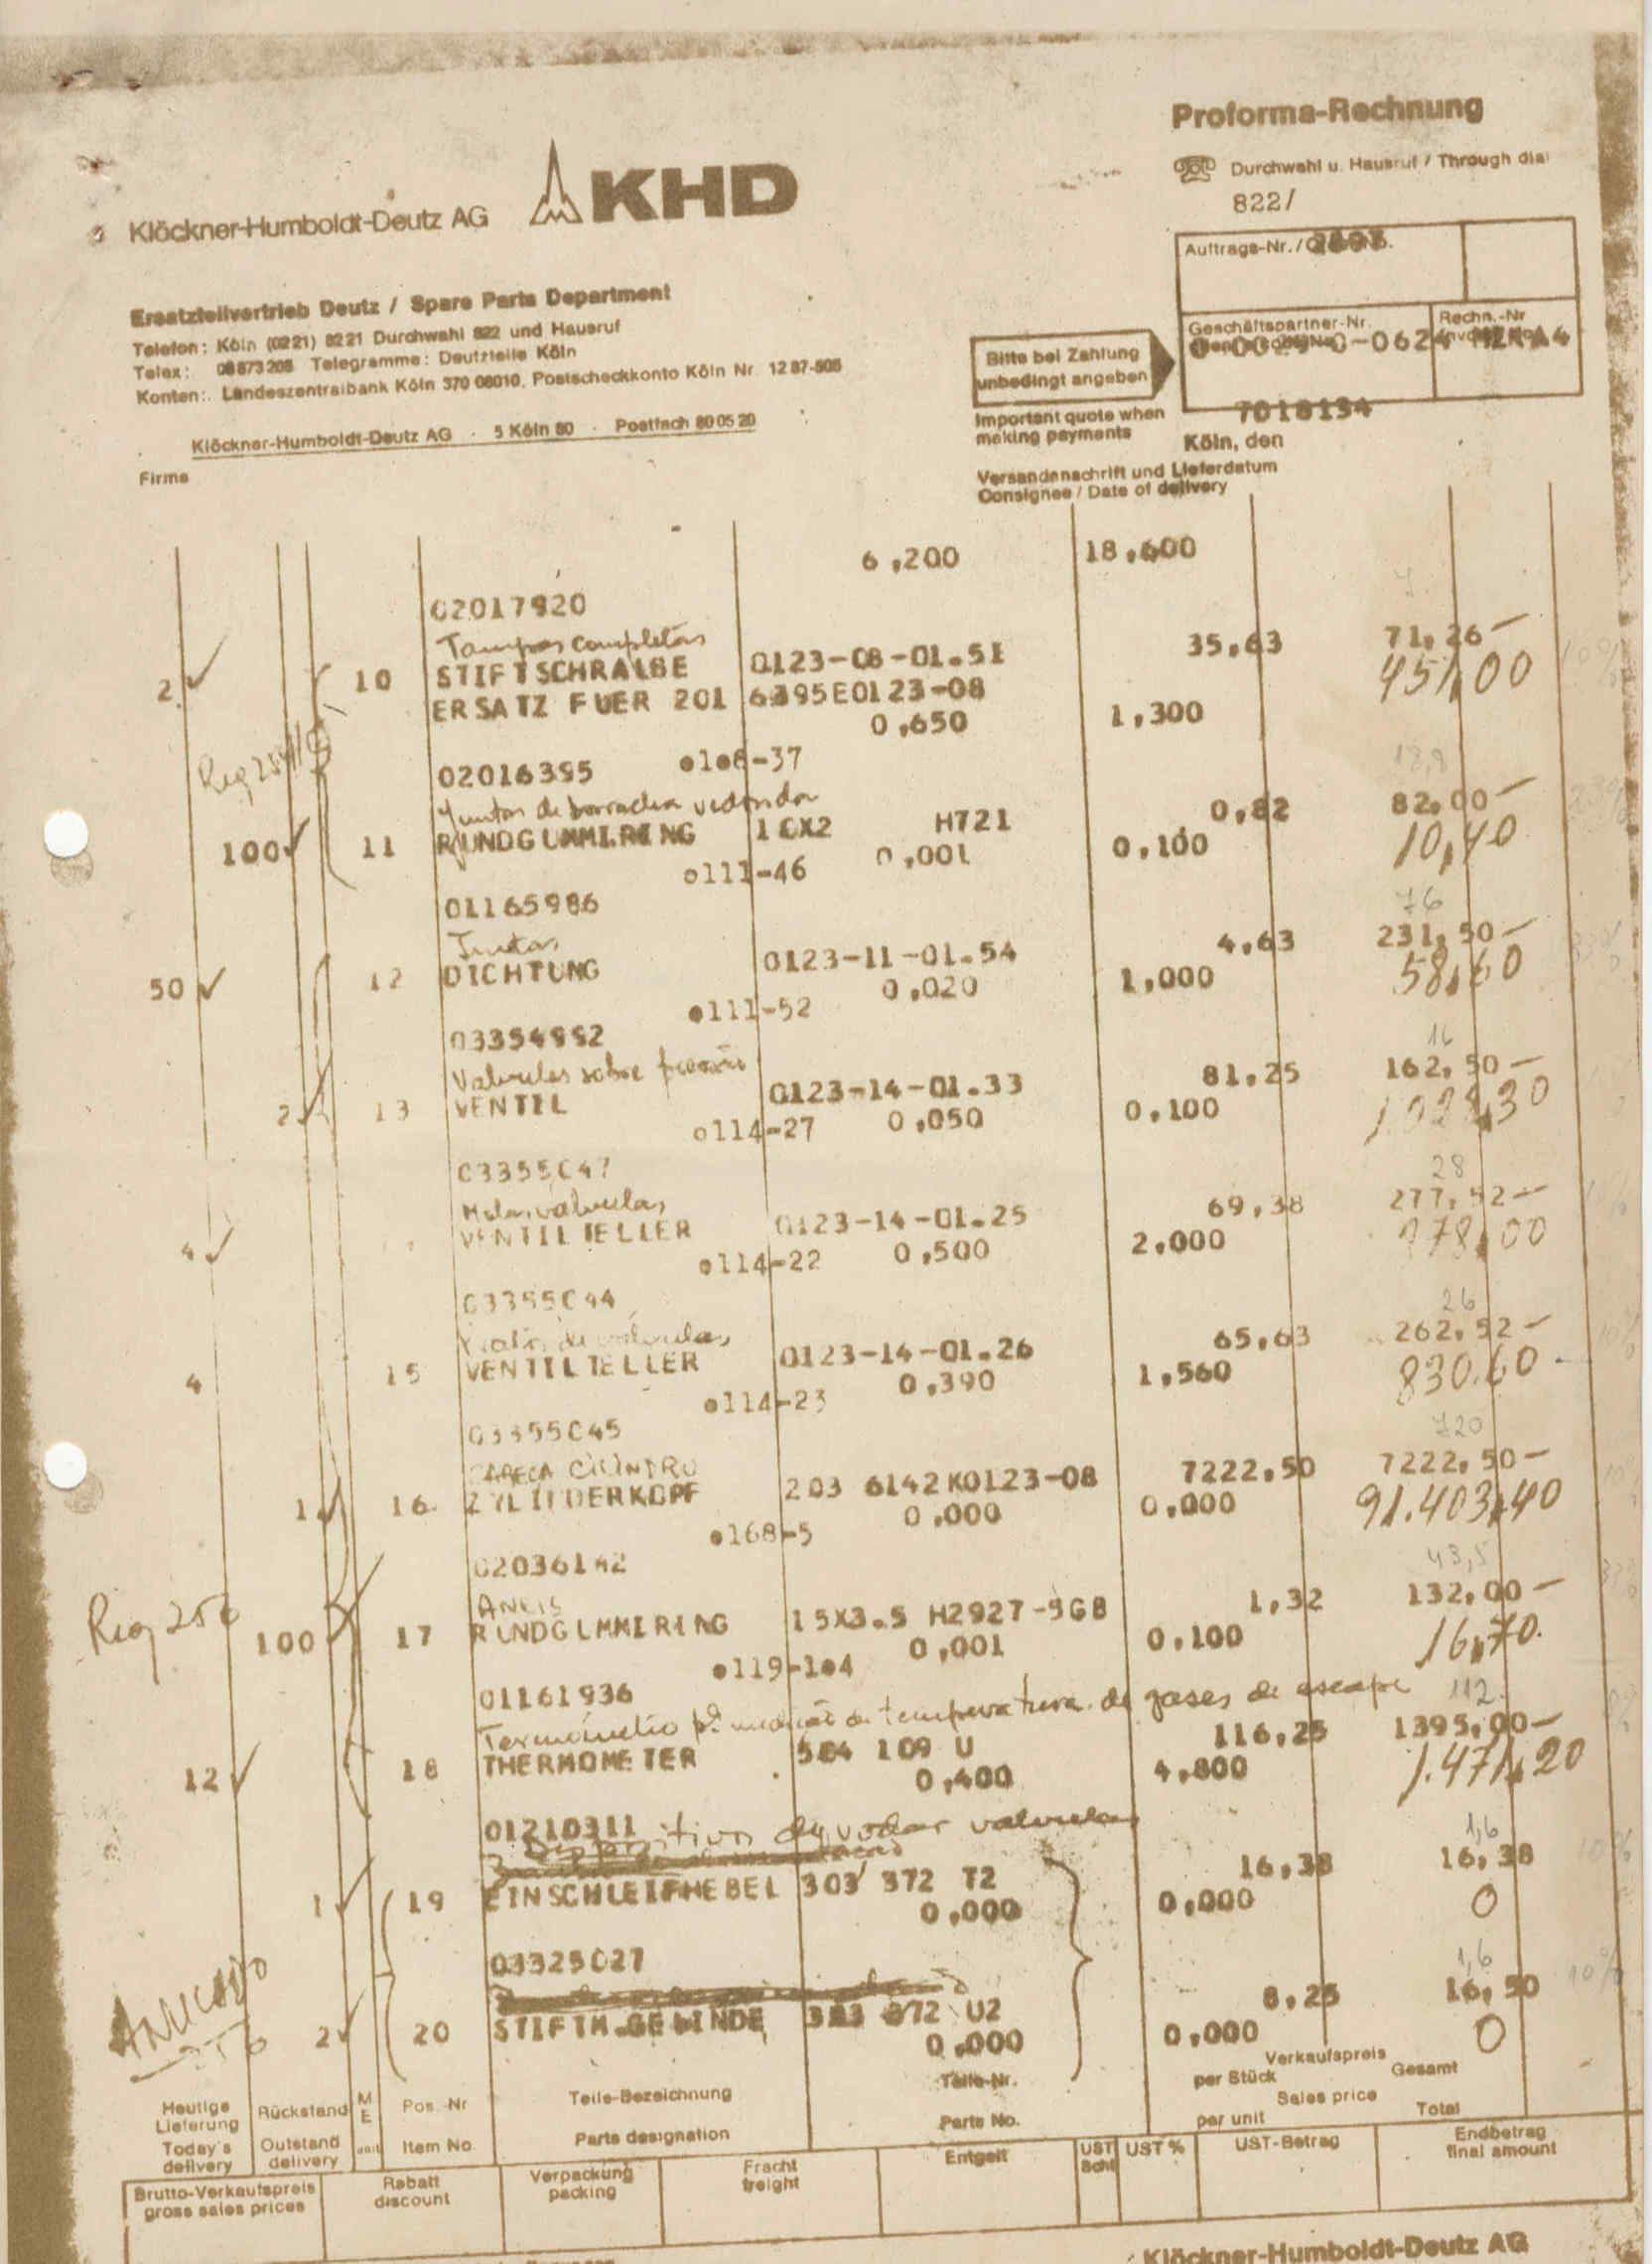 Proforma-Rechnung
Durchwahl u. Hausruf / Through dial
822/
Klöckner-Humboldt-Deutz AG KHD
Auftrags-Nr. /
Ersatzteilvertrieb Deutz / Spare Parts Department
Telefon: Köln (0221) 8221 Durchwahl 822 und Hausruf
Telex: 08873208 Telegramme: Deutzteile Köln
Konten: Landeszentralbank Köln 370 08010, Postscheckkonto Köln Nr. 1287-505
Geschäftspartner-Nr. Rechn.-Nr
Bitte bei Zahlung
unbedingt angeben
Important quote when
making payments
7018134
Köln, den
Klöckner-Humboldt-Deutz AG · 5 Köln 80 · Postfach 80 05 20
Firma
Versandanschrift und Lieferdatum
Consignee / Date of delivery
6,200 18,600
02017920
Tampas completas
2 10 STIFTSCHRAUBE 0123-08-01.51 35,63 71,26
451,00
ERSATZ FUER 201 6395E0123-08
0,650 1,300
02016395 0108-37
Juntas de borracha redonda
100 11 RUNDGUMMIRING 10X2 H721 0,82 82,00
10,40
0111-46 0,001 0,100
01165986
76
Juntas
50 12 DICHTUNG 0123-11-01.54 4,63 231,50
58,60
0111-52 0,020 1,000
03354992
16
Valvulas sobre pressão
2 13 VENTIL 0123-14-01.33 81,25 162,50
1.028,30
0114-27 0,050 0,100
03355047
28
4 VENTILTELLER 0123-14-01.25 69,38 277,52
0114-22 0,500 2,000
03355044
26
4 15 VENTILTELLER 0123-14-01.26 65,63 262,52
830.60
0114-23 0,390 1,560
03355045
720
CABEÇA CILINDRO
1 16 ZYLINDERKOPF 203 6142K0123-08 7222,50 7222,50
91.403,40
0168-5 0,000 0,000
02036142
43,5
ANEIS
Req 256
100 17 RUNDGUMMIRING 15X3.5 H2927-5GB 1,32 132,00
16,70
0119-104 0,001 0,100
01161936
Termómetro pª medição de temperatura de gases de escape 112
12 18 THERMOMETER 504 109 U 116,25 1395,00
1.471,20
0,400 4,800
01210311
Dispositivos de rodar valvulas
1,6
1 19 EINSCHLEIFHEBEL 303 372 T2 16,38 16,38
0,000 0,000 0
03325027
1,6
ANULADO
2 20 STIFTM.GEWINDE 303 372 U2 8,25 16,50
10%
0,000 0,000 0
Heutige Lieferung Rückstand ME Pos.-Nr Teile-Bezeichnung Teile-Nr. Verkaufspreis per Stück Gesamt
Today's delivery Outstand delivery unit Item No Parts designation Parts No. Sales price per unit Total
Brutto-Verkaufspreis Rabatt Verpackung Fracht Entgelt UST UST % UST-Betrag Endbetrag
gross sales prices discount packing freight final amount
Klöckner-Humboldt-Deutz AG